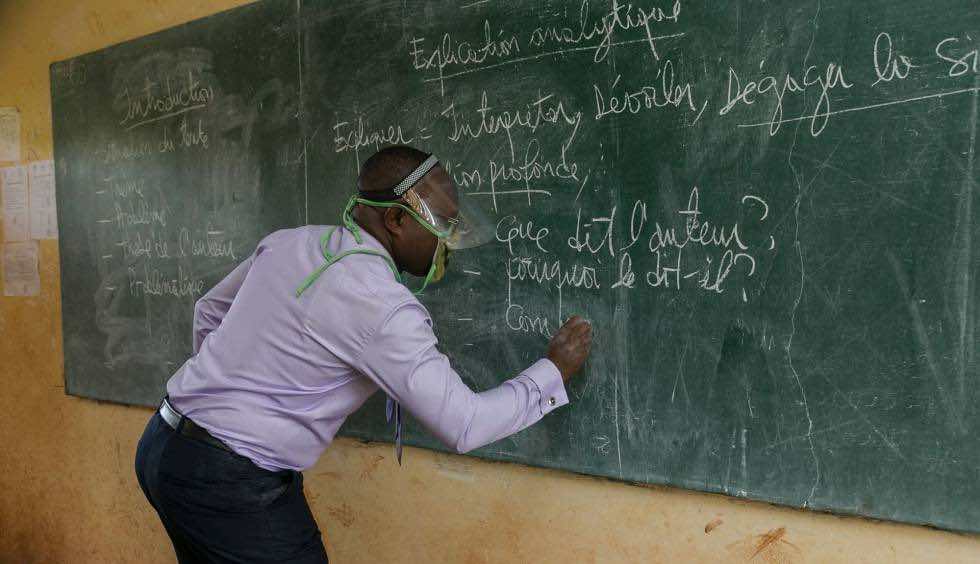 Introduction
du texte
- Thème
- Problème
- thèse de l'auteur
- Problématique
Explication analytique
Expliquer = Interpréter, Dévoiler, Dégager la Si
profonde
- Que dit l'auteur?
- pourquoi le dit-il?
- Com